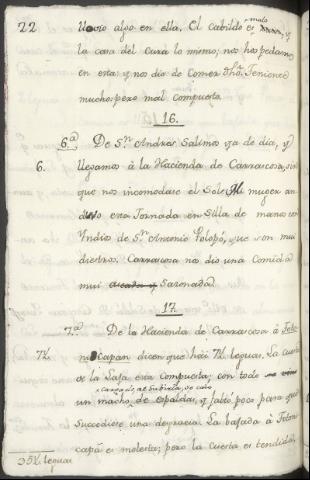 22 llovio algo en ella. El Cabildo es malo, y
la casa del Cura lo mismo; nos hospedamos
en esta; y nos dio de comer dho. Teniente
mucho; pero mal compuesta.
16.
6.a De Sn. Andres Salimos ya de dia, y
6. llegamos à la Hacienda de Carrascosa, sin
que nos incomodase el Sol. Mi muger an-
duvo esta Jornada en Silla de manos con
Yndios de Sn. Antonio Polopó, que son mui
diestros. Carrascosa nos dio una Comida
mui Sazonada.
17.
7.a De la Hacienda de Carrascosa à Teto-
7½. nocapan dicen que hai 7½ leguas. La cuesta
de la Laja esta compuesta; con todo
cargado al Subirla se caio
un macho de espaldas, y faltó poco para que
Succediese una desgracia. La bajada à Teton-
capà es molesta; pero la Cuesta es tendida,
35½ leguas